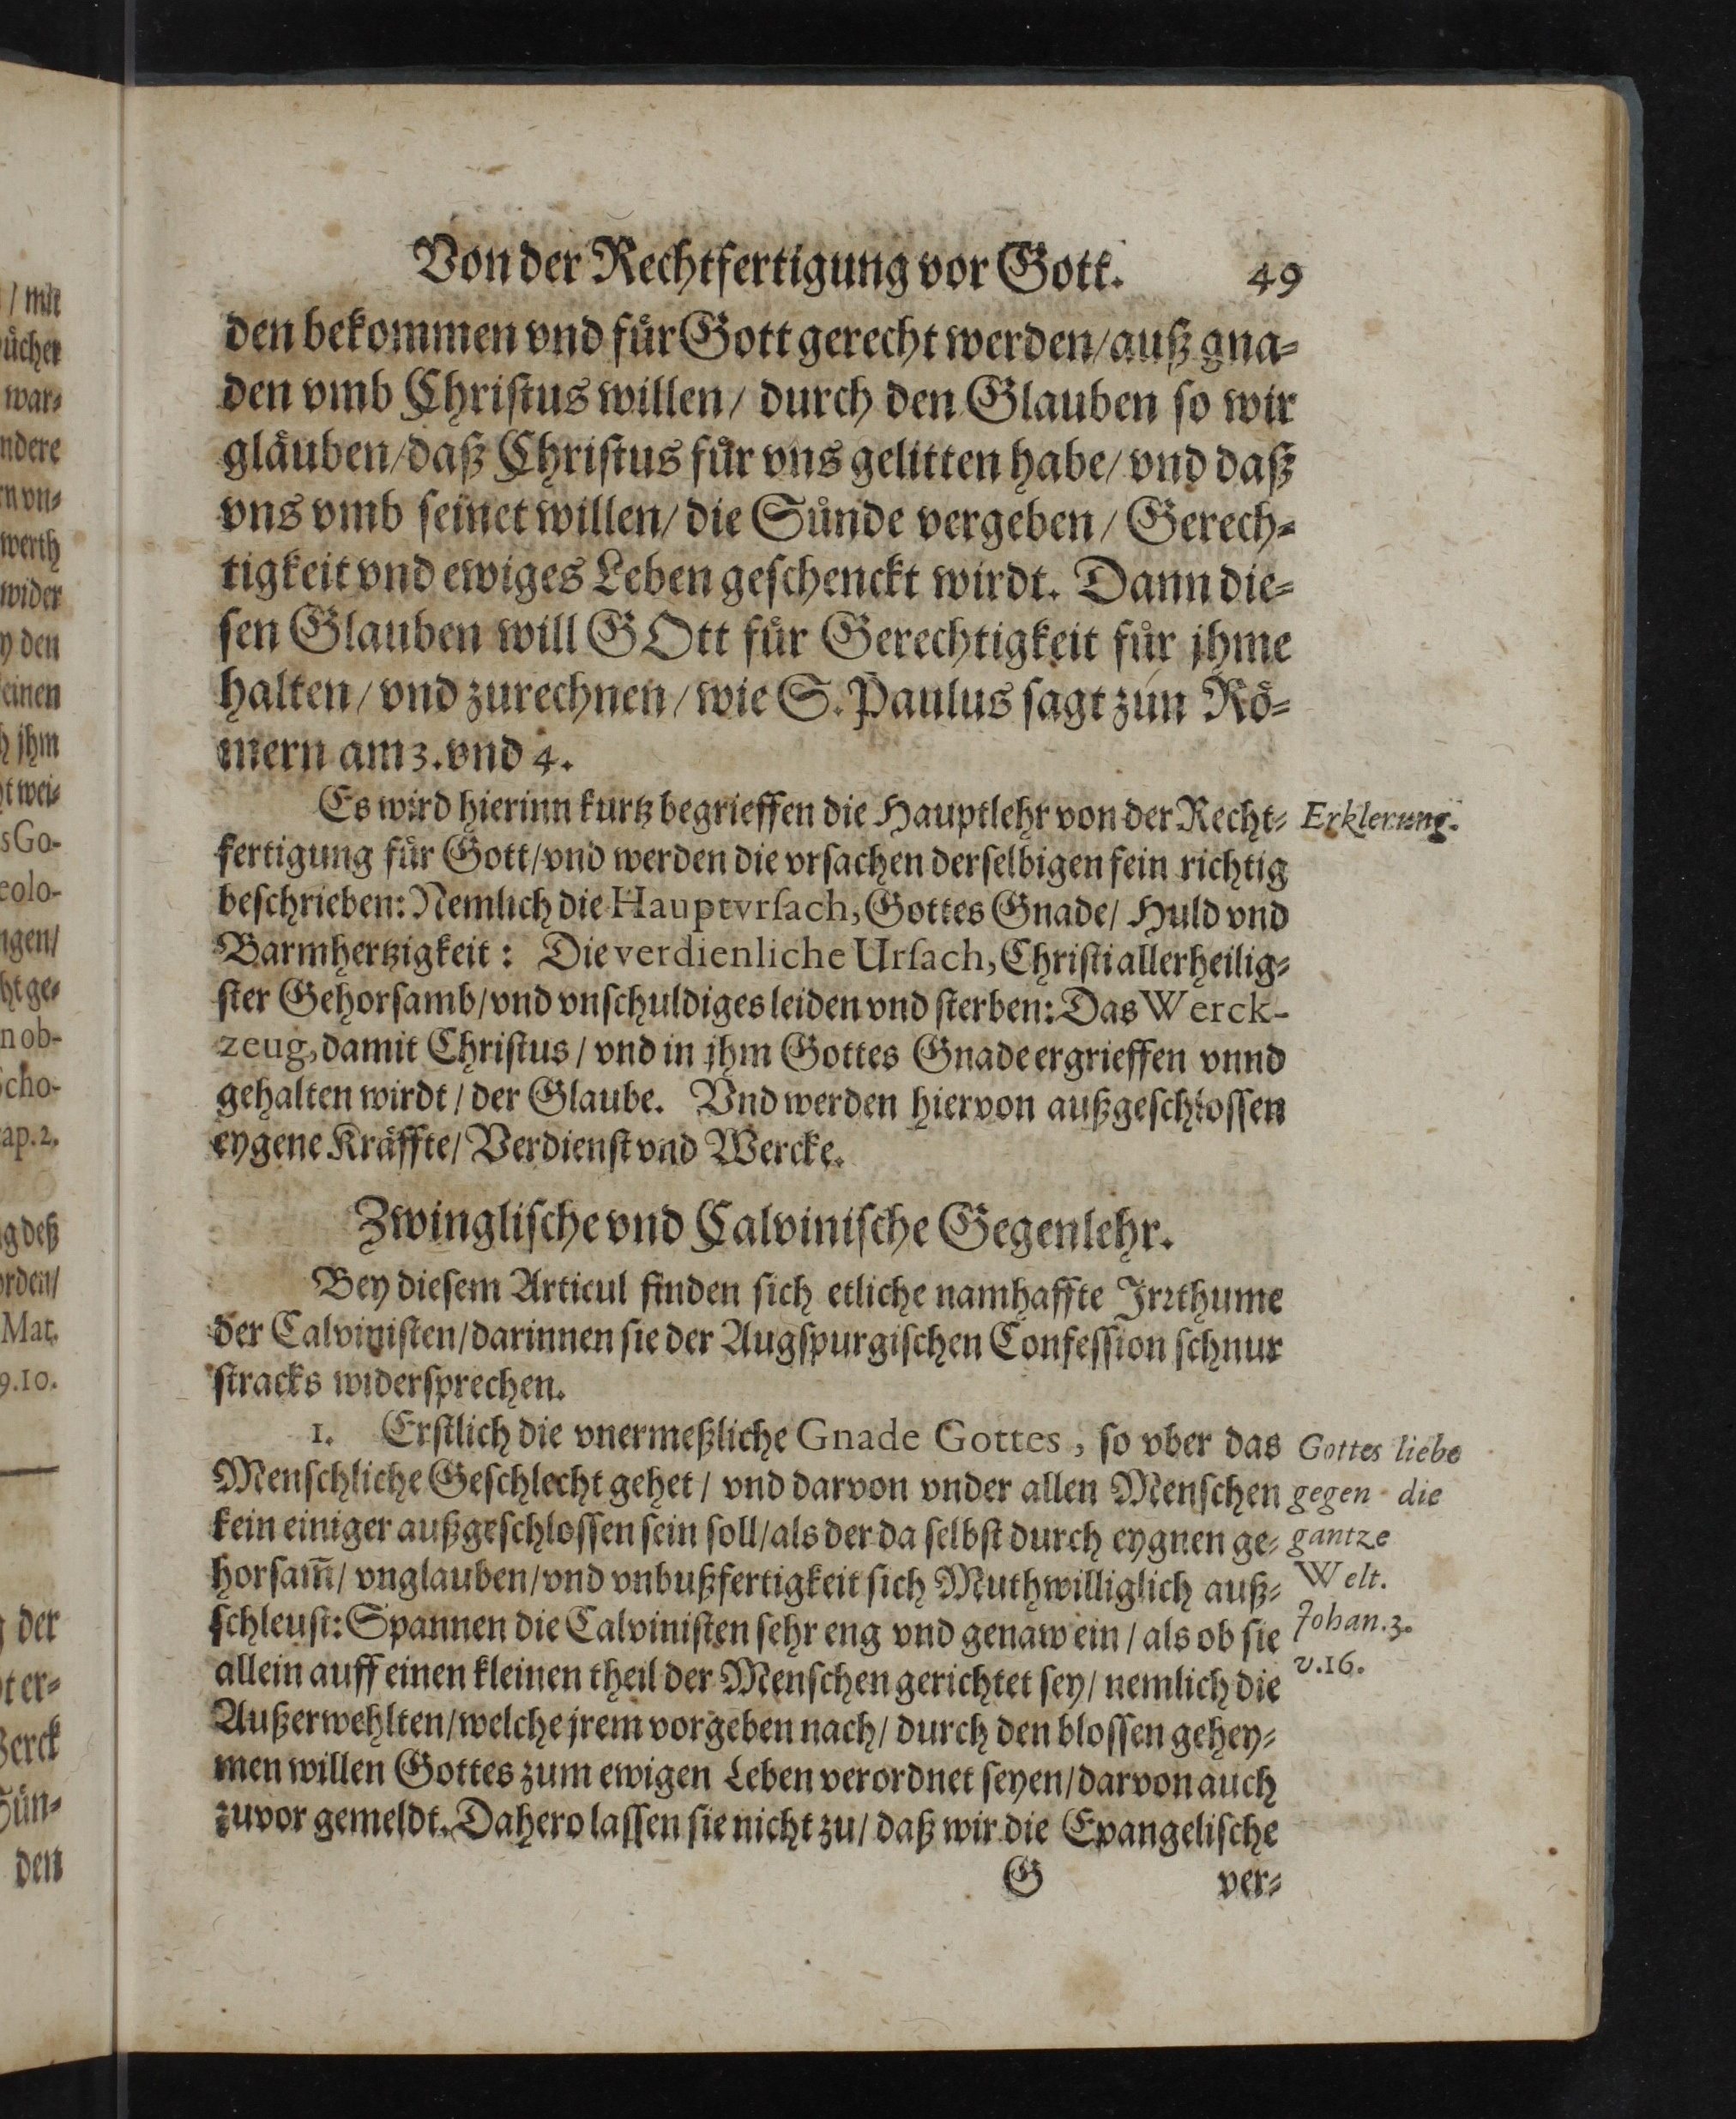 Von der Rechtfertigung vor Gott. 49
den bekommen vnd für Gott gerecht werden/ auß gna-
den vmb Christus willen/ durch den Glauben so wir
gläuben/ daß Christus für vns gelitten habe/ vnd daß
vns vmb seinet willen/ die Sünde vergeben/ Gerech-
tigkeit vnd ewiges Leben geschenckt wirdt. Dann die-
sen Glauben will GOtt für Gerechtigkeit für jhme
halten/ vnd zurechnen/ wie S. Paulus sagt zun Rö-
mern am 3. vnd 4.
Es wird hierinn kurtz begrieffen die Hauptlehr von der Recht-
Erklerung.
fertigung für Gott/ vnd werden die vrsachen derselbigen fein richtig
beschrieben: Nemlich die Hauptvrsach, Gottes Gnade/ Huld vnd
Barmhertzigkeit: Die verdienliche Ursach, Christi allerheilig-
ster Gehorsamb/ vnd vnschuldiges leiden vnd sterben: Das Werck-
zeug, damit Christus/ vnd in jhm Gottes Gnade ergrieffen vnnd
gehalten wirdt/ der Glaube. Vnd werden hiervon außgeschlossen
eygene Kräffte/ Verdienst vnd Wercke.
Zwinglische vnd Calvinische Gegenlehr.
Bey diesem Articul finden sich etliche namhaffte Jrrthume
der Calvinisten/ darinnen sie der Augspurgischen Confession schnur
stracks widersprechen.
1. Erstlich die vnermeßliche Gnade Gottes, so vber das
Menschliche Geschlecht gehet/ vnd darvon vnder allen Menschen
kein einiger außgeschlossen sein soll/ als der da selbst durch eygnen ge-
horsam̃/ vnglauben/ vnd vnbußfertigkeit sich Muthwilliglich auß-
schleust: Spannen die Calvinisten sehr eng vnd genaw ein/ als ob sie
allein auff einen kleinen theil der Menschen gerichtet sey/ nemlich die
Gottes liebe
gegen die
gantze
Welt.
Johan. 3.
v. 16.
Außerwehlten/ welche jrem vorgeben nach/ durch den blossen gehey-
men willen Gottes zum ewigen Leben verordnet seyen/ darvon auch
zuvor gemeldt. Dahero lassen sie nicht zu/ daß wir die Evangelische
G ver-